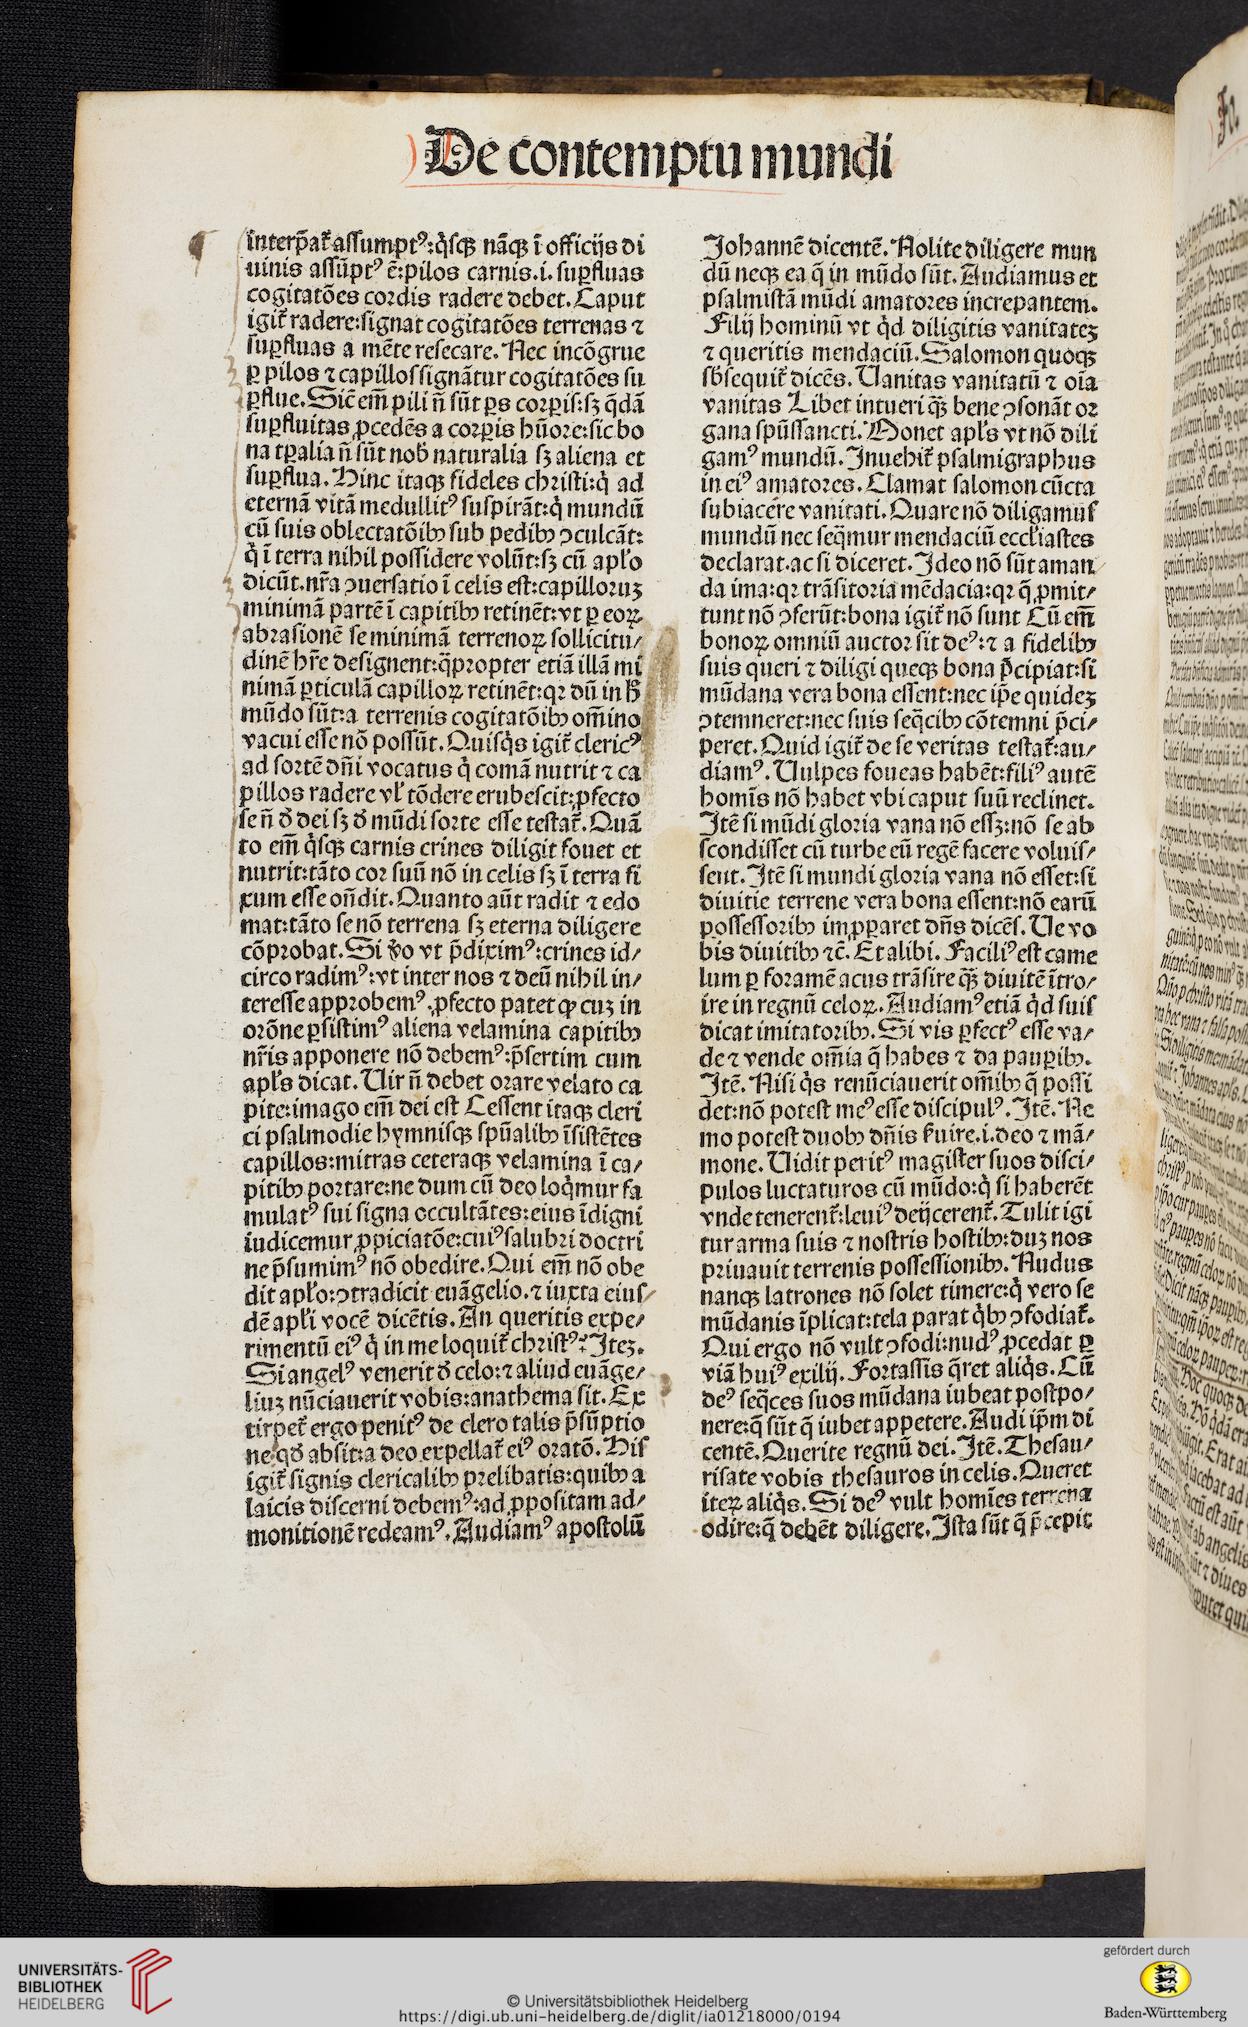 De contemptu mundi
interp̄at̄ assumptꝰ:q̇sqꝫ nāqꝫ ī officijs di
uinis assūptꝰ ē:pilos carnis.i.suꝑfluas
cogitatōes cordis radere debet.Caput
igit̄ radere:signat cogitatōes terrenas ⁊
suꝑfluas a mēte resecare.Nec incōgrue
ꝑ pilos ⁊ capillos signātur cogitatōes su
ꝑflue.Sic̄ em̄ pili n̄ sūt ꝑs corꝑis:sꝫ q̄dā
suꝑfluitas ꝓcedēs a corꝑis hūore:sic bo
na tꝑalia n̄ sūt nob̄ naturalia sꝫ aliena et
suꝑflua.Hinc itaqꝫ fideles christi:q̇ ad
eternā vitā medullitꝰ suspirāt:q̇ mundū
cū suis oblectatōibꝰ sub pedibꝰ ꝯculcāt:
q̇ ī terra nihil possidere volūt:sꝫ cū apl̄o
dicūt.nr̄a ꝯuersatio ī celis est:capilloruꝫ
minimā partē ī capitibꝰ retinēt:vt ꝑ eoꝝ
abrasionē se minimā terrenoꝝ sollicitu/
dinē hr̄e designent:q̄propter etiā illā mi
nimā ꝑticulā capilloꝝ retinēt:qꝛ dū in h̄
mūdo sūt:a terrenis cogitatōibꝰ om̄ino
vacui esse nō possūt.Quisq̇s igit̄ clericꝰ
ad sortē dn̄i vocatus q̇ comā nutrit ⁊ ca
pillos radere vl̄ tōdere erubescit:ꝓfecto
se n̄ đ dei sꝫ đ mūdi sorte esse testat̄.Quā
to em̄ q̇sqꝫ carnis crines diligit fouet et
nutrit:tāto cor suū nō in celis sꝫ ī terra fi
xum esse on̄dit.Quanto aūt radit ⁊ edo
mat:tāto se nō terrena sꝫ eterna diligere
cōprobat.Si v̄o vt p̄diximꝰ:crines id/
circo radimꝰ:vt inter nos ⁊ deū nihil in/
teresse approbemꝰ.ꝓfecto patet ꝙ cuꝫ in
orōne ꝑsistimꝰ aliena velamina capitibꝰ
nr̄is apponere nō debemꝰ:p̄sertim cum
apl̄s dicat.Uir n̄ debet orare velato ca
pite:imago em̄ dei est Cessent itaqꝫ cleri
ci psalmodie hymnisqꝫ spūalibꝰ īsistētes
capillos:mitras ceteraqꝫ velamina ī ca/
pitibꝰ portare:ne dum cū deo loq̇mur fa
mulatꝰ sui signa occultātes:eius īdigni
iudicemur ꝓpiciatōe:cuiꝰ salubri doctri
ne p̄sumimꝰ nō obedire.Qui em̄ nō obe
dit apl̄o:ꝯtradicit euāgelio.⁊ iuxta eius/
dē apl̄i vocē dicētis.An queritis expe/
rimentū eiꝰ q̇ in me loquit̄ christꝰ? Iteꝫ.
Si angelꝰ venerit đ celo:⁊ aliud euāge/
liuꝫ nūciauerit vobis:anathema sit.Ex
tirpet̄ ergo penitꝰ de clero talis p̄sūptio
ne qđ absit:a deo expellat̄ eiꝰ oratō.His
igit̄ signis clericalibꝰ prelibatis:quibꝰ a
laicis discerni debemꝰ:ad ꝓpositam ad/
monitionē redeamꝰ.Audiamꝰ apostolū
Johannē dicentē.Nolite diligere mun
dū neqꝫ ea q̄ in mūdo sūt.Audiamus et
psalmistā mūdi amatores increpantem.
Filij hominū vt q̇d diligitis vanitateꝫ
⁊ queritis mendaciū.Salomon quoqꝫ
sb̄sequit̄ dicēs.Uanitas vanitatū ⁊ oīa
vanitas Libet intueri q̄ꝫ bene ꝯsonāt or
gana spūssancti.Monet apl̄s vt nō dili
gamꝰ mundū.Inuehit̄ psalmigraphus
in eiꝰ amatores.Clamat salomon cūcta
subiacere vanitati.Quare nō diligamus
mundū nec seq̄mur mendaciū eccl̄iastes
declarat.ac si diceret.Ideo nō sūt aman/
da ima:qꝛ trāsitoria mēdacia:qꝛ q̄ ꝓmit/
tunt nō ꝯferūt:bona igit̄ nō sunt Cū em̄
bonoꝝ omniū auctor sit deꝰ:⁊ a fidelibꝰ
suis queri ⁊ diligi queqꝫ bona p̄cipiat:si
mūdana vera bona essent:nec ip̄e quideꝫ
ꝯtemneret:nec suis seq̄cibꝰ cōtemni p̄ci/
peret.Quid igit̄ de se veritas testat̄:au/
diamꝰ.Uulpes foueas habēt:filiꝰ autē
homīs nō habet vbi caput suū reclinet.
Itē si mūdi gloria vana nō essꝫ:nō se ab
scondisset cū turbe eū regē facere voluis/
sent.Itē si mundi gloria vana nō esset:si
diuitie terrene vera bona essent:nō earū
possessoribꝰ imꝓꝑaret dn̄s dicēs.Ue vo
bis diuitibꝰ ⁊c̄.Et alibi.Faciliꝰ est came
lum ꝑ foramē acus trāsire q̄ꝫ diuitē ītro/
ire in regnū celoꝝ.Audiamꝰ etiā q̇d suis
dicat imitatoribꝰ.Si vis ꝑfectꝰ esse va/
de ⁊ vende om̄ia q̄ habes ⁊ da pauꝑibꝰ.
Itē.Nisi q̇s renūciauerit om̄ibꝰ q̄ possi
det:nō potest meꝰ esse discipulꝰ.Itē.Ne
mo potest duobꝰ dn̄is ẜuire.i.deo ⁊ mā/
mone.Uidit peritꝰ magister suos disci/
pulos luctaturos cū mūdo:q̇ si haberēt
vnde tenerent̄:leuiꝰ deijcerent̄.Tulit igi
tur arma suis ⁊ nostris hostibꝰ:duꝫ nos
priuauit terrenis possessionibꝰ.Nudus
nanqꝫ latrones nō solet timere:q̇ vero se
mūdanis īplicat:tela parat q̇bꝰ ꝯfodiat̄.
Qui ergo nō vult ꝯfodi:nudꝰ ꝓcedat ꝑ
viā huiꝰ exilij.Fortassis q̄ret aliq̇s.Cū
deꝰ seq̄ces suos mūdana iubeat postpo/
nere:q̄ sūt q̄ iubet appetere.Audi ip̄m di
centē.Querite regnū dei.Itē.Thesau/
risate vobis thesauros in celis.Queret
iteꝝ aliq̇s.Si deꝰ vult homīes terrena
odire:q̄ debēt diligere.Ista sūt q̄ p̄cepit
UNIVERSITÄTS-
BIBLIOTHEK
HEIDELBERG
© Universitätsbibliothek Heidelberg
https://digi.ub.uni-heidelberg.de/diglit/ia01218000/0194
gefördert durch
Baden-Württemberg